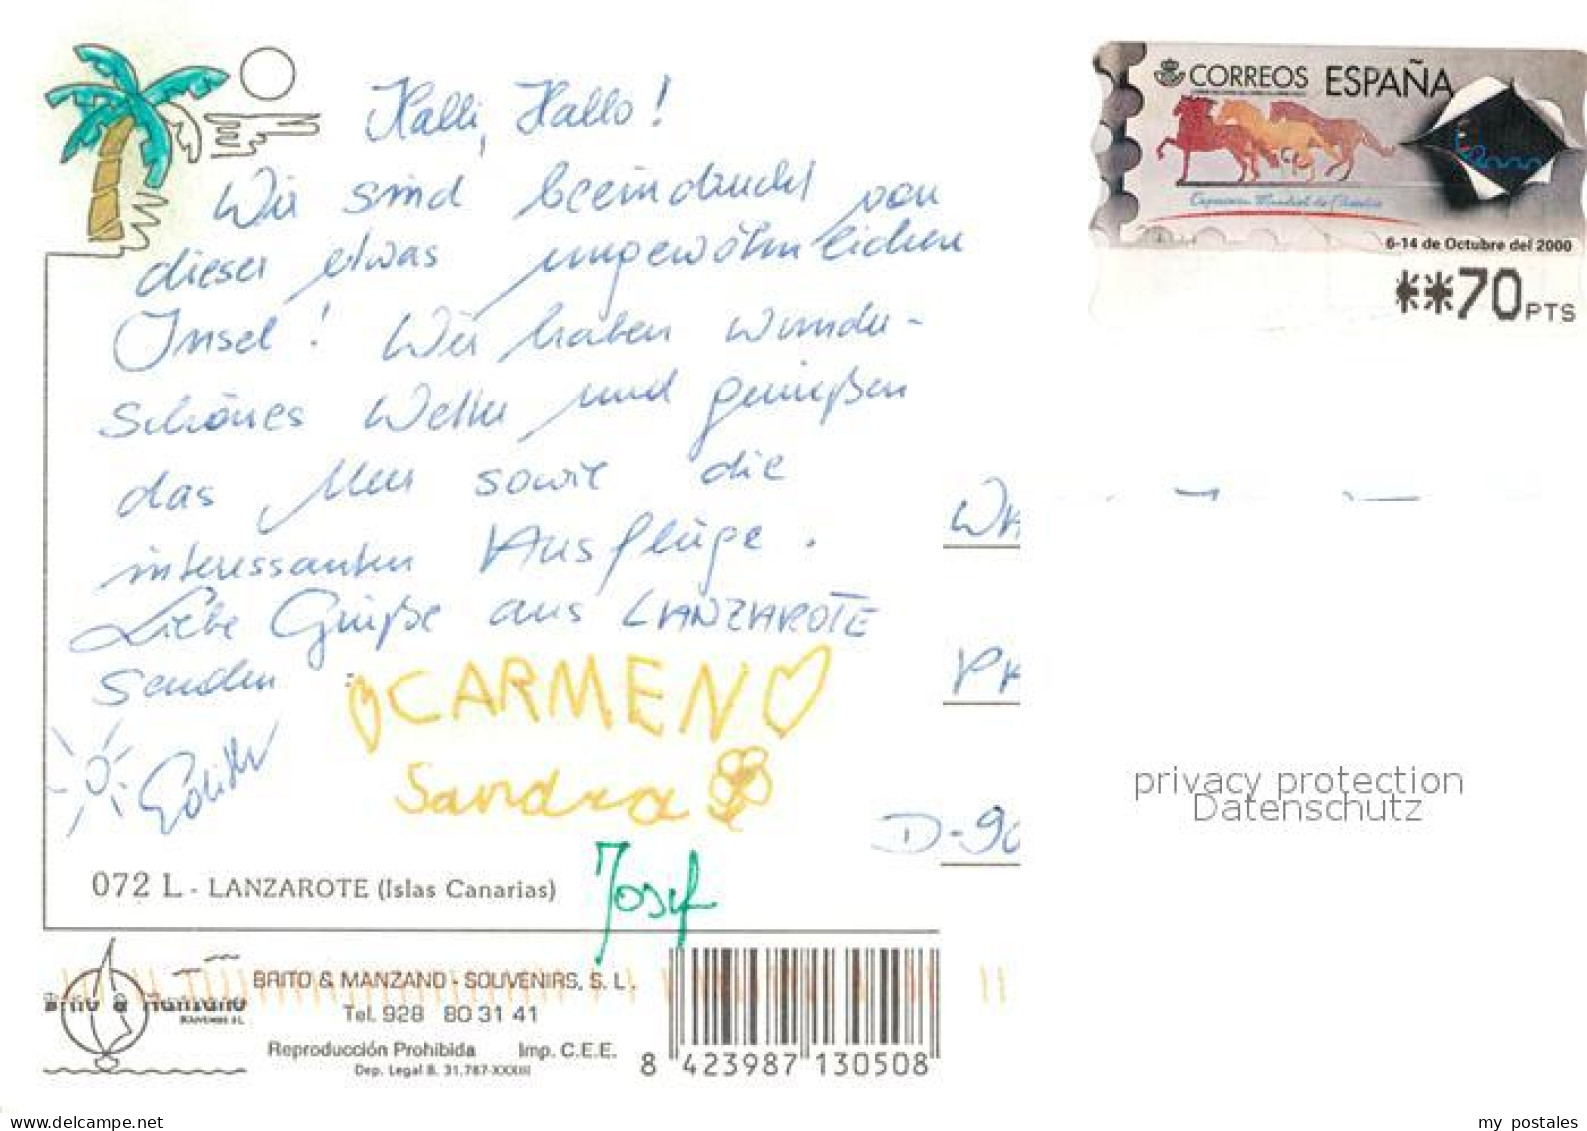 CORREOS ESPAÑA
Exposición Mundial de Filatelia
6-14 de Octubre del 2000
**70PTS
Halli, Hallo!
Wir sind beeindruckt von
dieser etwas ungewöhnlichen
Insel! Wir haben wunder-
schönes Wetter und genießen
das Meer sowie die
interessanten Ausflüge.
Liebe Grüße aus LANZAROTE
senden
CARMEN
Edith
Sandra
Josef
D-90
privacy protection
Datenschutz
072 L - LANZAROTE (Islas Canarias)
Brito & Manzano
BRITO & MANZANO - SOUVENIRS, S. L.
Tel. 928 80 31 41
Reproducción Prohibida Imp. C.E.E.
Dep. Legal B. 31.787-XXXIII
8 423987 130508
oldthing.net
my postales